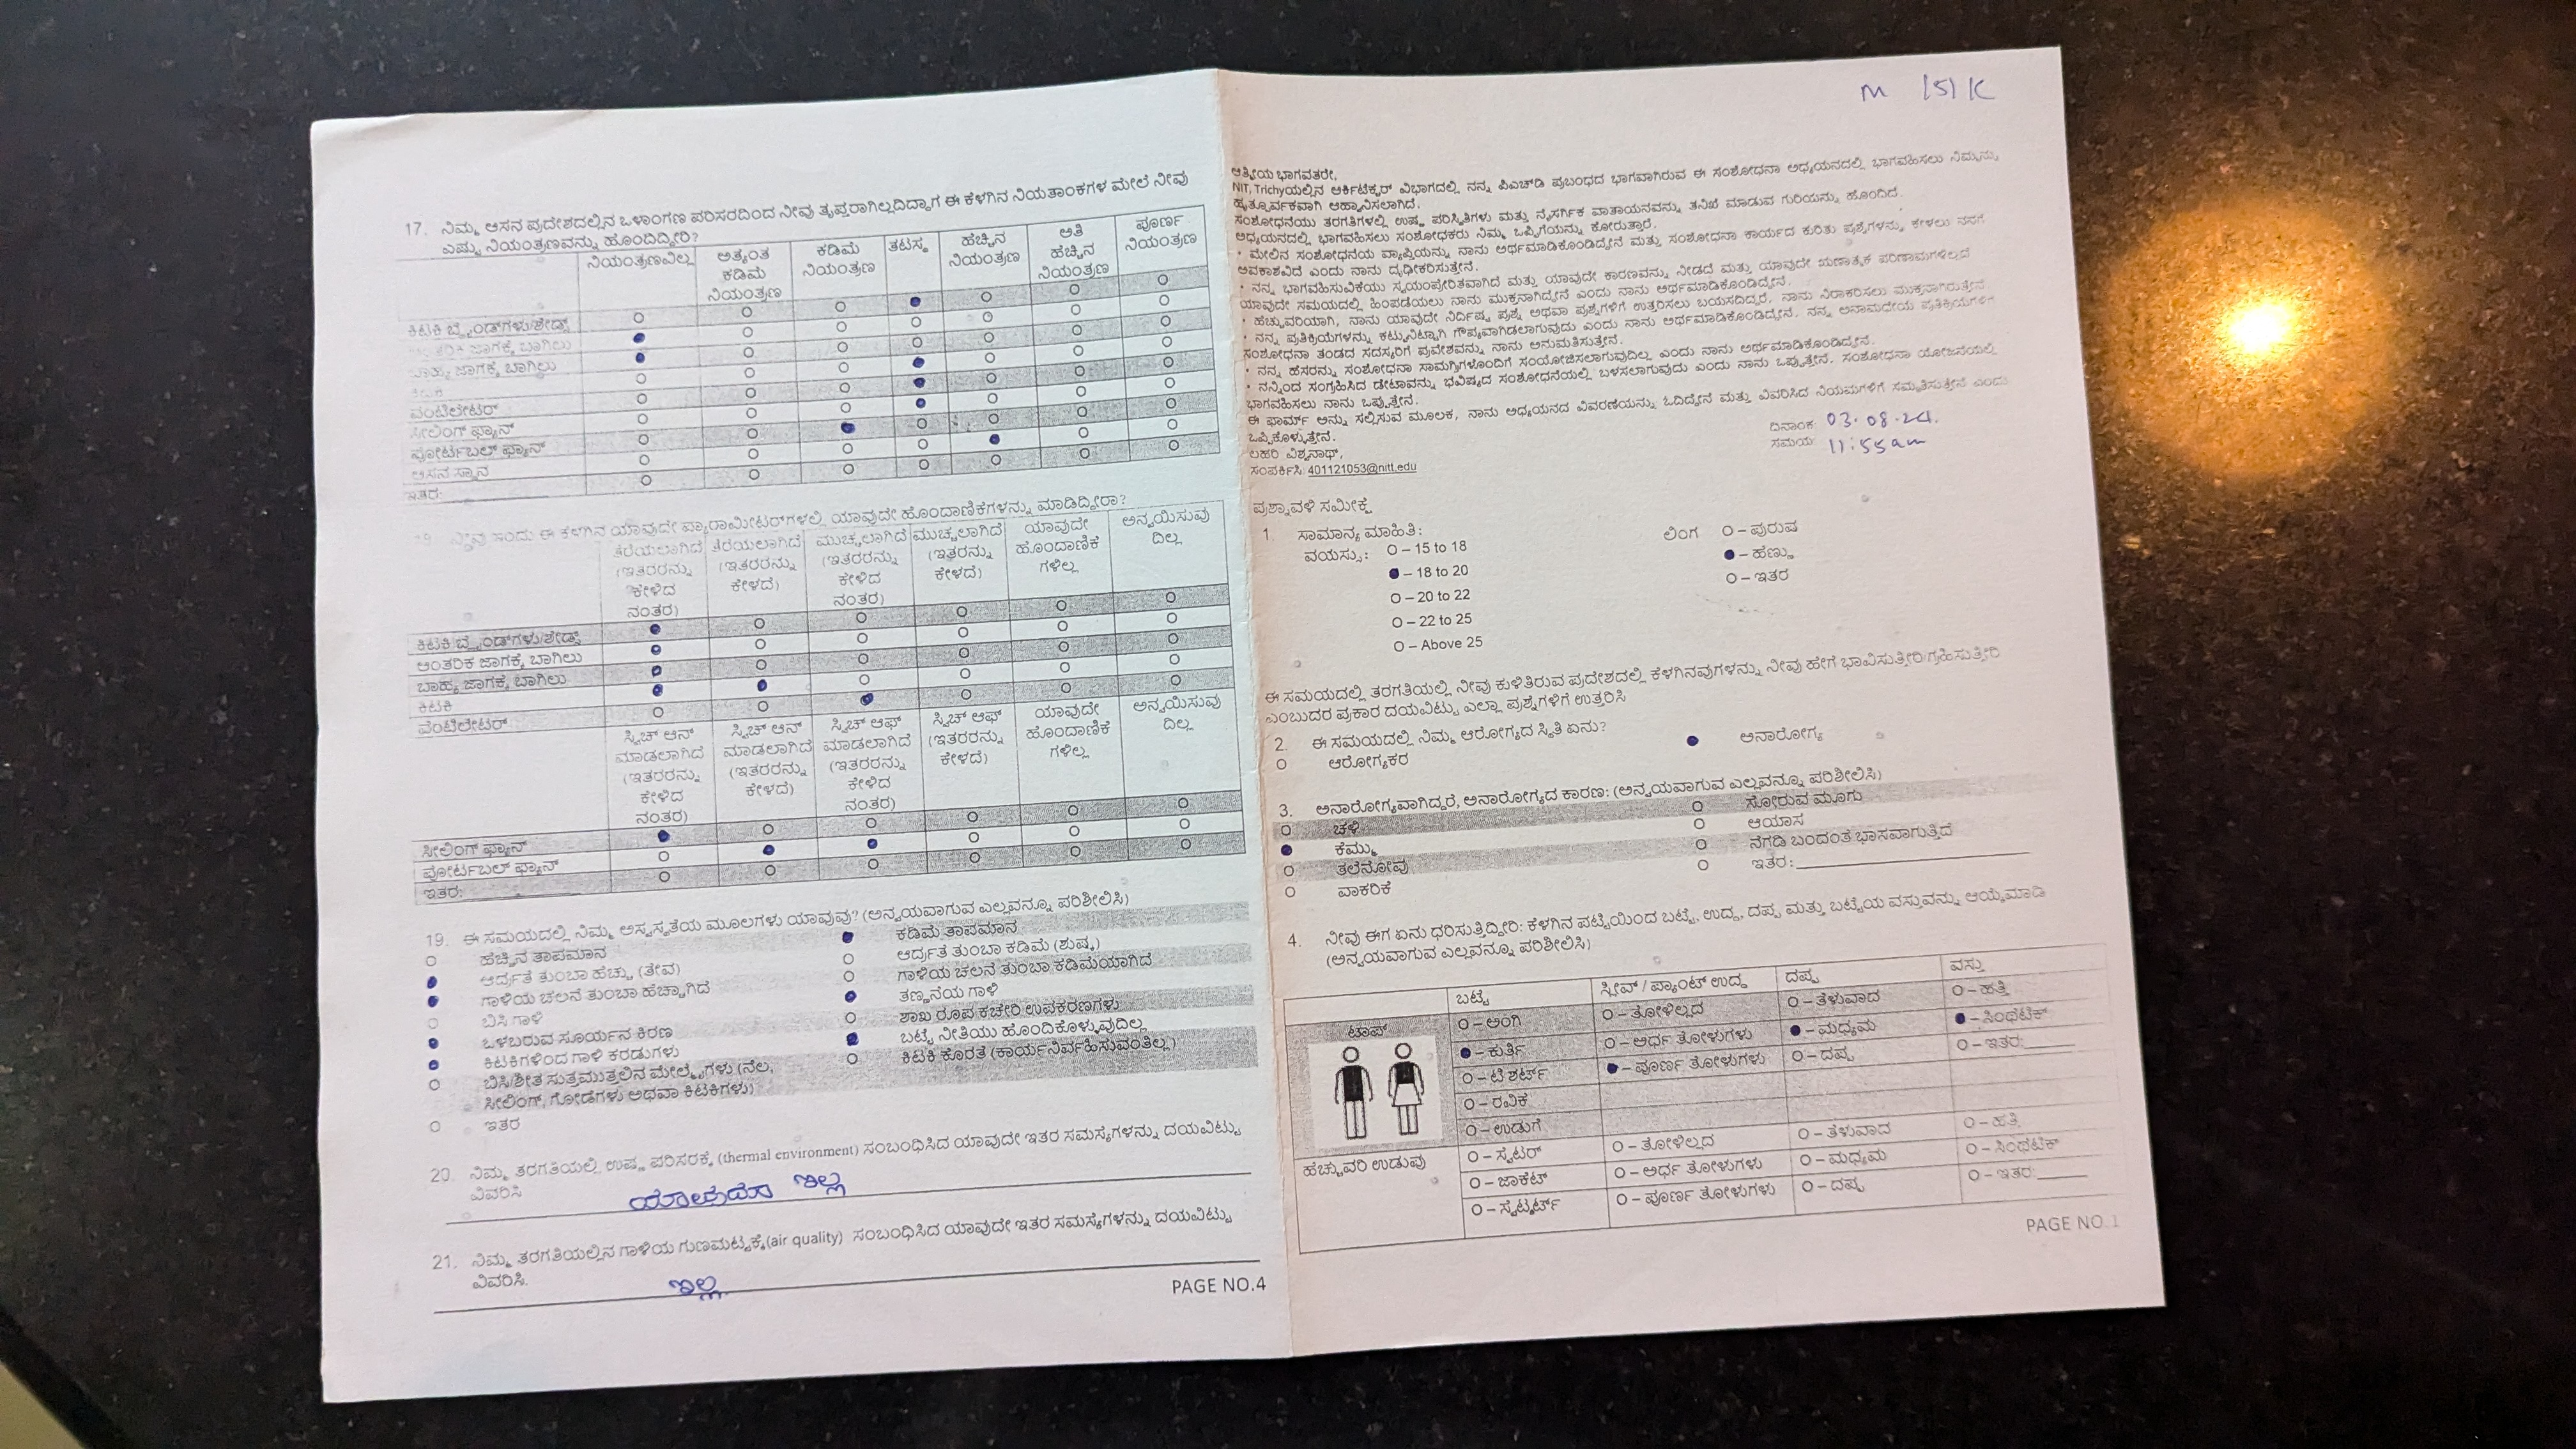 17. ನಿಮ್ಮ ಆಸನ ಪ್ರದೇಶದಲ್ಲಿನ ಒಳಾಂಗಣ ಪರಿಸರದಿಂದ ನೀವು ತೃಪ್ತರಾಗಿಲ್ಲದಿದ್ದಾಗ ಈ ಕೆಳಗಿನ ನಿಯತಾಂಕಗಳ ಮೇಲೆ ನೀವು
ಎಷ್ಟು ನಿಯಂತ್ರಣವನ್ನು ಹೊಂದಿದ್ದೀರಿ?
ನಿಯಂತ್ರಣವಿಲ್ಲ ಅತ್ಯಂತ ಕಡಿಮೆ ನಿಯಂತ್ರಣ ಕಡಿಮೆ ನಿಯಂತ್ರಣ ತಟಸ್ಥ ಹೆಚ್ಚಿನ ನಿಯಂತ್ರಣ ಅತಿ ಹೆಚ್ಚಿನ ನಿಯಂತ್ರಣ ಪೂರ್ಣ ನಿಯಂತ್ರಣ
ಕಿಟಕಿ ಬ್ಲೈಂಡ್‌ಗಳು/ಶೇಡ್ಸ್
ಜಾಗಕ್ಕೆ ಬಾಗಿಲು
ಬಾಹ್ಯ ಜಾಗಕ್ಕೆ ಬಾಗಿಲು
ವೆಂಟಿಲೇಟರ್
ಸೀಲಿಂಗ್ ಫ್ಯಾನ್
ಪೋರ್ಟಬಲ್ ಫ್ಯಾನ್
ಆಸನ ಸ್ಥಾನ
ಇತರ:
ನೀವು ಇಂದು ಈ ಕೆಳಗಿನ ಯಾವುದೇ ಪ್ಯಾರಾಮೀಟರ್‌ಗಳಲ್ಲಿ ಯಾವುದೇ ಹೊಂದಾಣಿಕೆಗಳನ್ನು ಮಾಡಿದ್ದೀರಾ?
ತೆರೆಯಲಾಗಿದೆ (ಇತರರನ್ನು ಕೇಳಿದ ನಂತರ) ತೆರೆಯಲಾಗಿದೆ (ಇತರರನ್ನು ಕೇಳದೆ) ಮುಚ್ಚಲಾಗಿದೆ (ಇತರರನ್ನು ಕೇಳಿದ ನಂತರ) ಮುಚ್ಚಲಾಗಿದೆ (ಇತರರನ್ನು ಕೇಳದೆ) ಯಾವುದೇ ಹೊಂದಾಣಿಕೆ ಗಳಿಲ್ಲ ಅನ್ವಯಿಸುವು ದಿಲ್ಲ
ಕಿಟಕಿ ಬ್ಲೈಂಡ್‌ಗಳು/ಶೇಡ್ಸ್
ಆಂತರಿಕ ಜಾಗಕ್ಕೆ ಬಾಗಿಲು
ಬಾಹ್ಯ ಜಾಗಕ್ಕೆ ಬಾಗಿಲು
ಕಿಟಕಿ
ವೆಂಟಿಲೇಟರ್
ಸ್ವಿಚ್ ಆನ್ ಮಾಡಲಾಗಿದೆ (ಇತರರನ್ನು ಕೇಳಿದ ನಂತರ) ಸ್ವಿಚ್ ಆನ್ ಮಾಡಲಾಗಿದೆ (ಇತರರನ್ನು ಕೇಳದೆ) ಸ್ವಿಚ್ ಆಫ್ ಮಾಡಲಾಗಿದೆ (ಇತರರನ್ನು ಕೇಳಿದ ನಂತರ) ಸ್ವಿಚ್ ಆಫ್ (ಇತರರನ್ನು ಕೇಳದೆ) ಯಾವುದೇ ಹೊಂದಾಣಿಕೆ ಗಳಿಲ್ಲ ಅನ್ವಯಿಸುವು ದಿಲ್ಲ
ಸೀಲಿಂಗ್ ಫ್ಯಾನ್
ಪೋರ್ಟಬಲ್ ಫ್ಯಾನ್
ಇತರ:
19. ಈ ಸಮಯದಲ್ಲಿ ನಿಮ್ಮ ಅಸ್ವಸ್ಥತೆಯ ಮೂಲಗಳು ಯಾವುವು? (ಅನ್ವಯವಾಗುವ ಎಲ್ಲವನ್ನೂ ಪರಿಶೀಲಿಸಿ)
ಹೆಚ್ಚಿನ ತಾಪಮಾನ ಕಡಿಮೆ ತಾಪಮಾನ
ಆರ್ದ್ರತೆ ತುಂಬಾ ಹೆಚ್ಚು (ತೇವ) ಆರ್ದ್ರತೆ ತುಂಬಾ ಕಡಿಮೆ (ಶುಷ್ಕ)
ಗಾಳಿಯ ಚಲನೆ ತುಂಬಾ ಹೆಚ್ಚಾಗಿದೆ ಗಾಳಿಯ ಚಲನೆ ತುಂಬಾ ಕಡಿಮೆಯಾಗಿದೆ
ಬಿಸಿ ಗಾಳಿ ತಣ್ಣನೆಯ ಗಾಳಿ
ಒಳಬರುವ ಸೂರ್ಯನ ಕಿರಣ ಶಾಖ ರೂಪ ಕಚೇರಿ ಉಪಕರಣಗಳು
ಕಿಟಕಿಗಳಿಂದ ಗಾಳಿ ಕರಡುಗಳು ಬಟ್ಟೆ ನೀತಿಯು ಹೊಂದಿಕೊಳ್ಳುವುದಿಲ್ಲ
ಬಿಸಿ/ಶೀತ ಸುತ್ತಮುತ್ತಲಿನ ಮೇಲ್ಮೈಗಳು (ನೆಲ, ಕಿಟಕಿ ಕೊರತೆ (ಕಾರ್ಯನಿರ್ವಹಿಸುವಂತಿಲ್ಲ)
ಸೀಲಿಂಗ್, ಗೋಡೆಗಳು ಅಥವಾ ಕಿಟಕಿಗಳು)
ಇತರ
20. ನಿಮ್ಮ ತರಗತಿಯಲ್ಲಿ ಉಷ್ಣ ಪರಿಸರಕ್ಕೆ (thermal environment) ಸಂಬಂಧಿಸಿದ ಯಾವುದೇ ಇತರ ಸಮಸ್ಯೆಗಳನ್ನು ದಯವಿಟ್ಟು
ವಿವರಿಸಿ
ಯಾವುದೂ ಇಲ್ಲ
21. ನಿಮ್ಮ ತರಗತಿಯಲ್ಲಿನ ಗಾಳಿಯ ಗುಣಮಟ್ಟಕ್ಕೆ(air quality) ಸಂಬಂಧಿಸಿದ ಯಾವುದೇ ಇತರ ಸಮಸ್ಯೆಗಳನ್ನು ದಯವಿಟ್ಟು
ವಿವರಿಸಿ.
ಇಲ್ಲ
PAGE NO.4
M 151 K
ಆತ್ಮೀಯ ಭಾಗವತರೇ,
NIT, Trichyಯಲ್ಲಿನ ಆರ್ಕಿಟೆಕ್ಚರ್ ವಿಭಾಗದಲ್ಲಿ ನನ್ನ ಪಿಎಚ್‌ಡಿ ಪ್ರಬಂಧದ ಭಾಗವಾಗಿರುವ ಈ ಸಂಶೋಧನಾ ಅಧ್ಯಯನದಲ್ಲಿ ಭಾಗವಹಿಸಲು ನಿಮ್ಮನ್ನು
ಹೃತ್ಪೂರ್ವಕವಾಗಿ ಆಹ್ವಾನಿಸಲಾಗಿದೆ.
ಸಂಶೋಧನೆಯು ತರಗತಿಗಳಲ್ಲಿ ಉಷ್ಣ ಪರಿಸ್ಥಿತಿಗಳು ಮತ್ತು ನೈಸರ್ಗಿಕ ವಾತಾಯನವನ್ನು ತನಿಖೆ ಮಾಡುವ ಗುರಿಯನ್ನು ಹೊಂದಿದೆ.
ಅಧ್ಯಯನದಲ್ಲಿ ಭಾಗವಹಿಸಲು ಸಂಶೋಧಕರು ನಿಮ್ಮ ಒಪ್ಪಿಗೆಯನ್ನು ಕೋರುತ್ತಾರೆ.
• ಮೇಲಿನ ಸಂಶೋಧನೆಯ ವ್ಯಾಪ್ತಿಯನ್ನು ನಾನು ಅರ್ಥಮಾಡಿಕೊಂಡಿದ್ದೇನೆ ಮತ್ತು ಸಂಶೋಧನಾ ಕಾರ್ಯದ ಕುರಿತು ಪ್ರಶ್ನೆಗಳನ್ನು ಕೇಳಲು ನನಗೆ
ಅವಕಾಶವಿದೆ ಎಂದು ನಾನು ದೃಢೀಕರಿಸುತ್ತೇನೆ.
• ನನ್ನ ಭಾಗವಹಿಸುವಿಕೆಯು ಸ್ವಯಂಪ್ರೇರಿತವಾಗಿದೆ ಮತ್ತು ಯಾವುದೇ ಕಾರಣವನ್ನು ನೀಡದೆ ಮತ್ತು ಯಾವುದೇ ಋಣಾತ್ಮಕ ಪರಿಣಾಮಗಳಿಲ್ಲದೆ
ಯಾವುದೇ ಸಮಯದಲ್ಲಿ ಹಿಂಪಡೆಯಲು ನಾನು ಮುಕ್ತನಾಗಿದ್ದೇನೆ ಎಂದು ನಾನು ಅರ್ಥಮಾಡಿಕೊಂಡಿದ್ದೇನೆ.
• ಹೆಚ್ಚುವರಿಯಾಗಿ, ನಾನು ಯಾವುದೇ ನಿರ್ದಿಷ್ಟ ಪ್ರಶ್ನೆ ಅಥವಾ ಪ್ರಶ್ನೆಗಳಿಗೆ ಉತ್ತರಿಸಲು ಬಯಸದಿದ್ದರೆ, ನಾನು ನಿರಾಕರಿಸಲು ಮುಕ್ತನಾಗಿರುತ್ತೇನೆ
• ನನ್ನ ಪ್ರತಿಕ್ರಿಯೆಗಳನ್ನು ಕಟ್ಟುನಿಟ್ಟಾಗಿ ಗೌಪ್ಯವಾಗಿಡಲಾಗುವುದು ಎಂದು ನಾನು ಅರ್ಥಮಾಡಿಕೊಂಡಿದ್ದೇನೆ. ನನ್ನ ಅನಾಮಧೇಯ ಪ್ರತಿಕ್ರಿಯೆಗಳಿಗೆ
ಸಂಶೋಧನಾ ತಂಡದ ಸದಸ್ಯರಿಗೆ ಪ್ರವೇಶವನ್ನು ನಾನು ಅನುಮತಿಸುತ್ತೇನೆ.
• ನನ್ನ ಹೆಸರನ್ನು ಸಂಶೋಧನಾ ಸಾಮಗ್ರಿಗಳೊಂದಿಗೆ ಸಂಯೋಜಿಸಲಾಗುವುದಿಲ್ಲ ಎಂದು ನಾನು ಅರ್ಥಮಾಡಿಕೊಂಡಿದ್ದೇನೆ.
• ನನ್ನಿಂದ ಸಂಗ್ರಹಿಸಿದ ಡೇಟಾವನ್ನು ಭವಿಷ್ಯದ ಸಂಶೋಧನೆಯಲ್ಲಿ ಬಳಸಲಾಗುವುದು ಎಂದು ನಾನು ಒಪ್ಪುತ್ತೇನೆ. ಸಂಶೋಧನಾ ಯೋಜನೆಯಲ್ಲಿ
ಭಾಗವಹಿಸಲು ನಾನು ಒಪ್ಪುತ್ತೇನೆ.
ಈ ಫಾರ್ಮ್ ಅನ್ನು ಸಲ್ಲಿಸುವ ಮೂಲಕ, ನಾನು ಅಧ್ಯಯನದ ವಿವರಣೆಯನ್ನು ಓದಿದ್ದೇನೆ ಮತ್ತು ವಿವರಿಸಿದ ನಿಯಮಗಳಿಗೆ ಸಮ್ಮತಿಸುತ್ತೇನೆ ಎಂದು
ಒಪ್ಪಿಕೊಳ್ಳುತ್ತೇನೆ.
ದಿನಾಂಕ: 03.08.24.
ಲಹರಿ ವಿಶ್ವನಾಥ್,
ಸಮಯ: 11:55am
ಸಂಪರ್ಕಿಸಿ: 401121053@nitt.edu
ಪ್ರಶ್ನಾವಳಿ ಸಮೀಕ್ಷೆ
1. ಸಾಮಾನ್ಯ ಮಾಹಿತಿ:
ವಯಸ್ಸು: O – 15 to 18 ಲಿಂಗ O – ಪುರುಷ
● – 18 to 20 ● – ಹೆಣ್ಣು
O – 20 to 22 O – ಇತರ
O – 22 to 25
O – Above 25
ಈ ಸಮಯದಲ್ಲಿ ತರಗತಿಯಲ್ಲಿ ನೀವು ಕುಳಿತಿರುವ ಪ್ರದೇಶದಲ್ಲಿ ಕೆಳಗಿನವುಗಳನ್ನು ನೀವು ಹೇಗೆ ಭಾವಿಸುತ್ತೀರಿ/ಗ್ರಹಿಸುತ್ತೀರಿ
ಎಂಬುದರ ಪ್ರಕಾರ ದಯವಿಟ್ಟು ಎಲ್ಲಾ ಪ್ರಶ್ನೆಗಳಿಗೆ ಉತ್ತರಿಸಿ
2. ಈ ಸಮಯದಲ್ಲಿ ನಿಮ್ಮ ಆರೋಗ್ಯದ ಸ್ಥಿತಿ ಏನು?
O ಆರೋಗ್ಯಕರ ● ಅನಾರೋಗ್ಯ
3. ಅನಾರೋಗ್ಯವಾಗಿದ್ದರೆ, ಅನಾರೋಗ್ಯದ ಕಾರಣ: (ಅನ್ವಯವಾಗುವ ಎಲ್ಲವನ್ನೂ ಪರಿಶೀಲಿಸಿ)
O ಚಳಿ O ಸೋರುವ ಮೂಗು
● ಕೆಮ್ಮು O ಆಯಾಸ
O ತಲೆನೋವು O ನೆಗಡಿ ಬಂದಂತೆ ಭಾಸವಾಗುತ್ತಿದೆ
O ವಾಕರಿಕೆ O ಇತರ:
4. ನೀವು ಈಗ ಏನು ಧರಿಸುತ್ತಿದ್ದೀರಿ: ಕೆಳಗಿನ ಪಟ್ಟಿಯಿಂದ ಬಟ್ಟೆ, ಉದ್ದ, ದಪ್ಪ ಮತ್ತು ಬಟ್ಟೆಯ ವಸ್ತುವನ್ನು ಆಯ್ಕೆಮಾಡಿ
(ಅನ್ವಯವಾಗುವ ಎಲ್ಲವನ್ನೂ ಪರಿಶೀಲಿಸಿ)
ಬಟ್ಟೆ ಸ್ಲೀವ್ / ಪ್ಯಾಂಟ್ ಉದ್ದ ದಪ್ಪ ವಸ್ತು
ಟಾಪ್ O – ಅಂಗಿ O – ತೋಳಿಲ್ಲದ O – ತೆಳುವಾದ O – ಹತ್ತಿ
● – ಕುರ್ತಿ O – ಅರ್ಧ ತೋಳುಗಳು ● – ಮಧ್ಯಮ ● – ಸಿಂಥೆಟಿಕ್
O – ಟಿ ಶರ್ಟ್ ● – ಪೂರ್ಣ ತೋಳುಗಳು O – ದಪ್ಪ O – ಇತರ:
O – ರವಿಕೆ
O – ಉಡುಗೆ
ಹೆಚ್ಚುವರಿ ಉಡುಪು O – ಸ್ವೆಟರ್ O – ತೋಳಿಲ್ಲದ O – ತೆಳುವಾದ O – ಹತ್ತಿ
O – ಜಾಕೆಟ್ O – ಅರ್ಧ ತೋಳುಗಳು O – ಮಧ್ಯಮ O – ಸಿಂಥೆಟಿಕ್
O – ಸ್ವೆಟ್ಶರ್ಟ್ O – ಪೂರ್ಣ ತೋಳುಗಳು O – ದಪ್ಪ O – ಇತರ:
PAGE NO.1